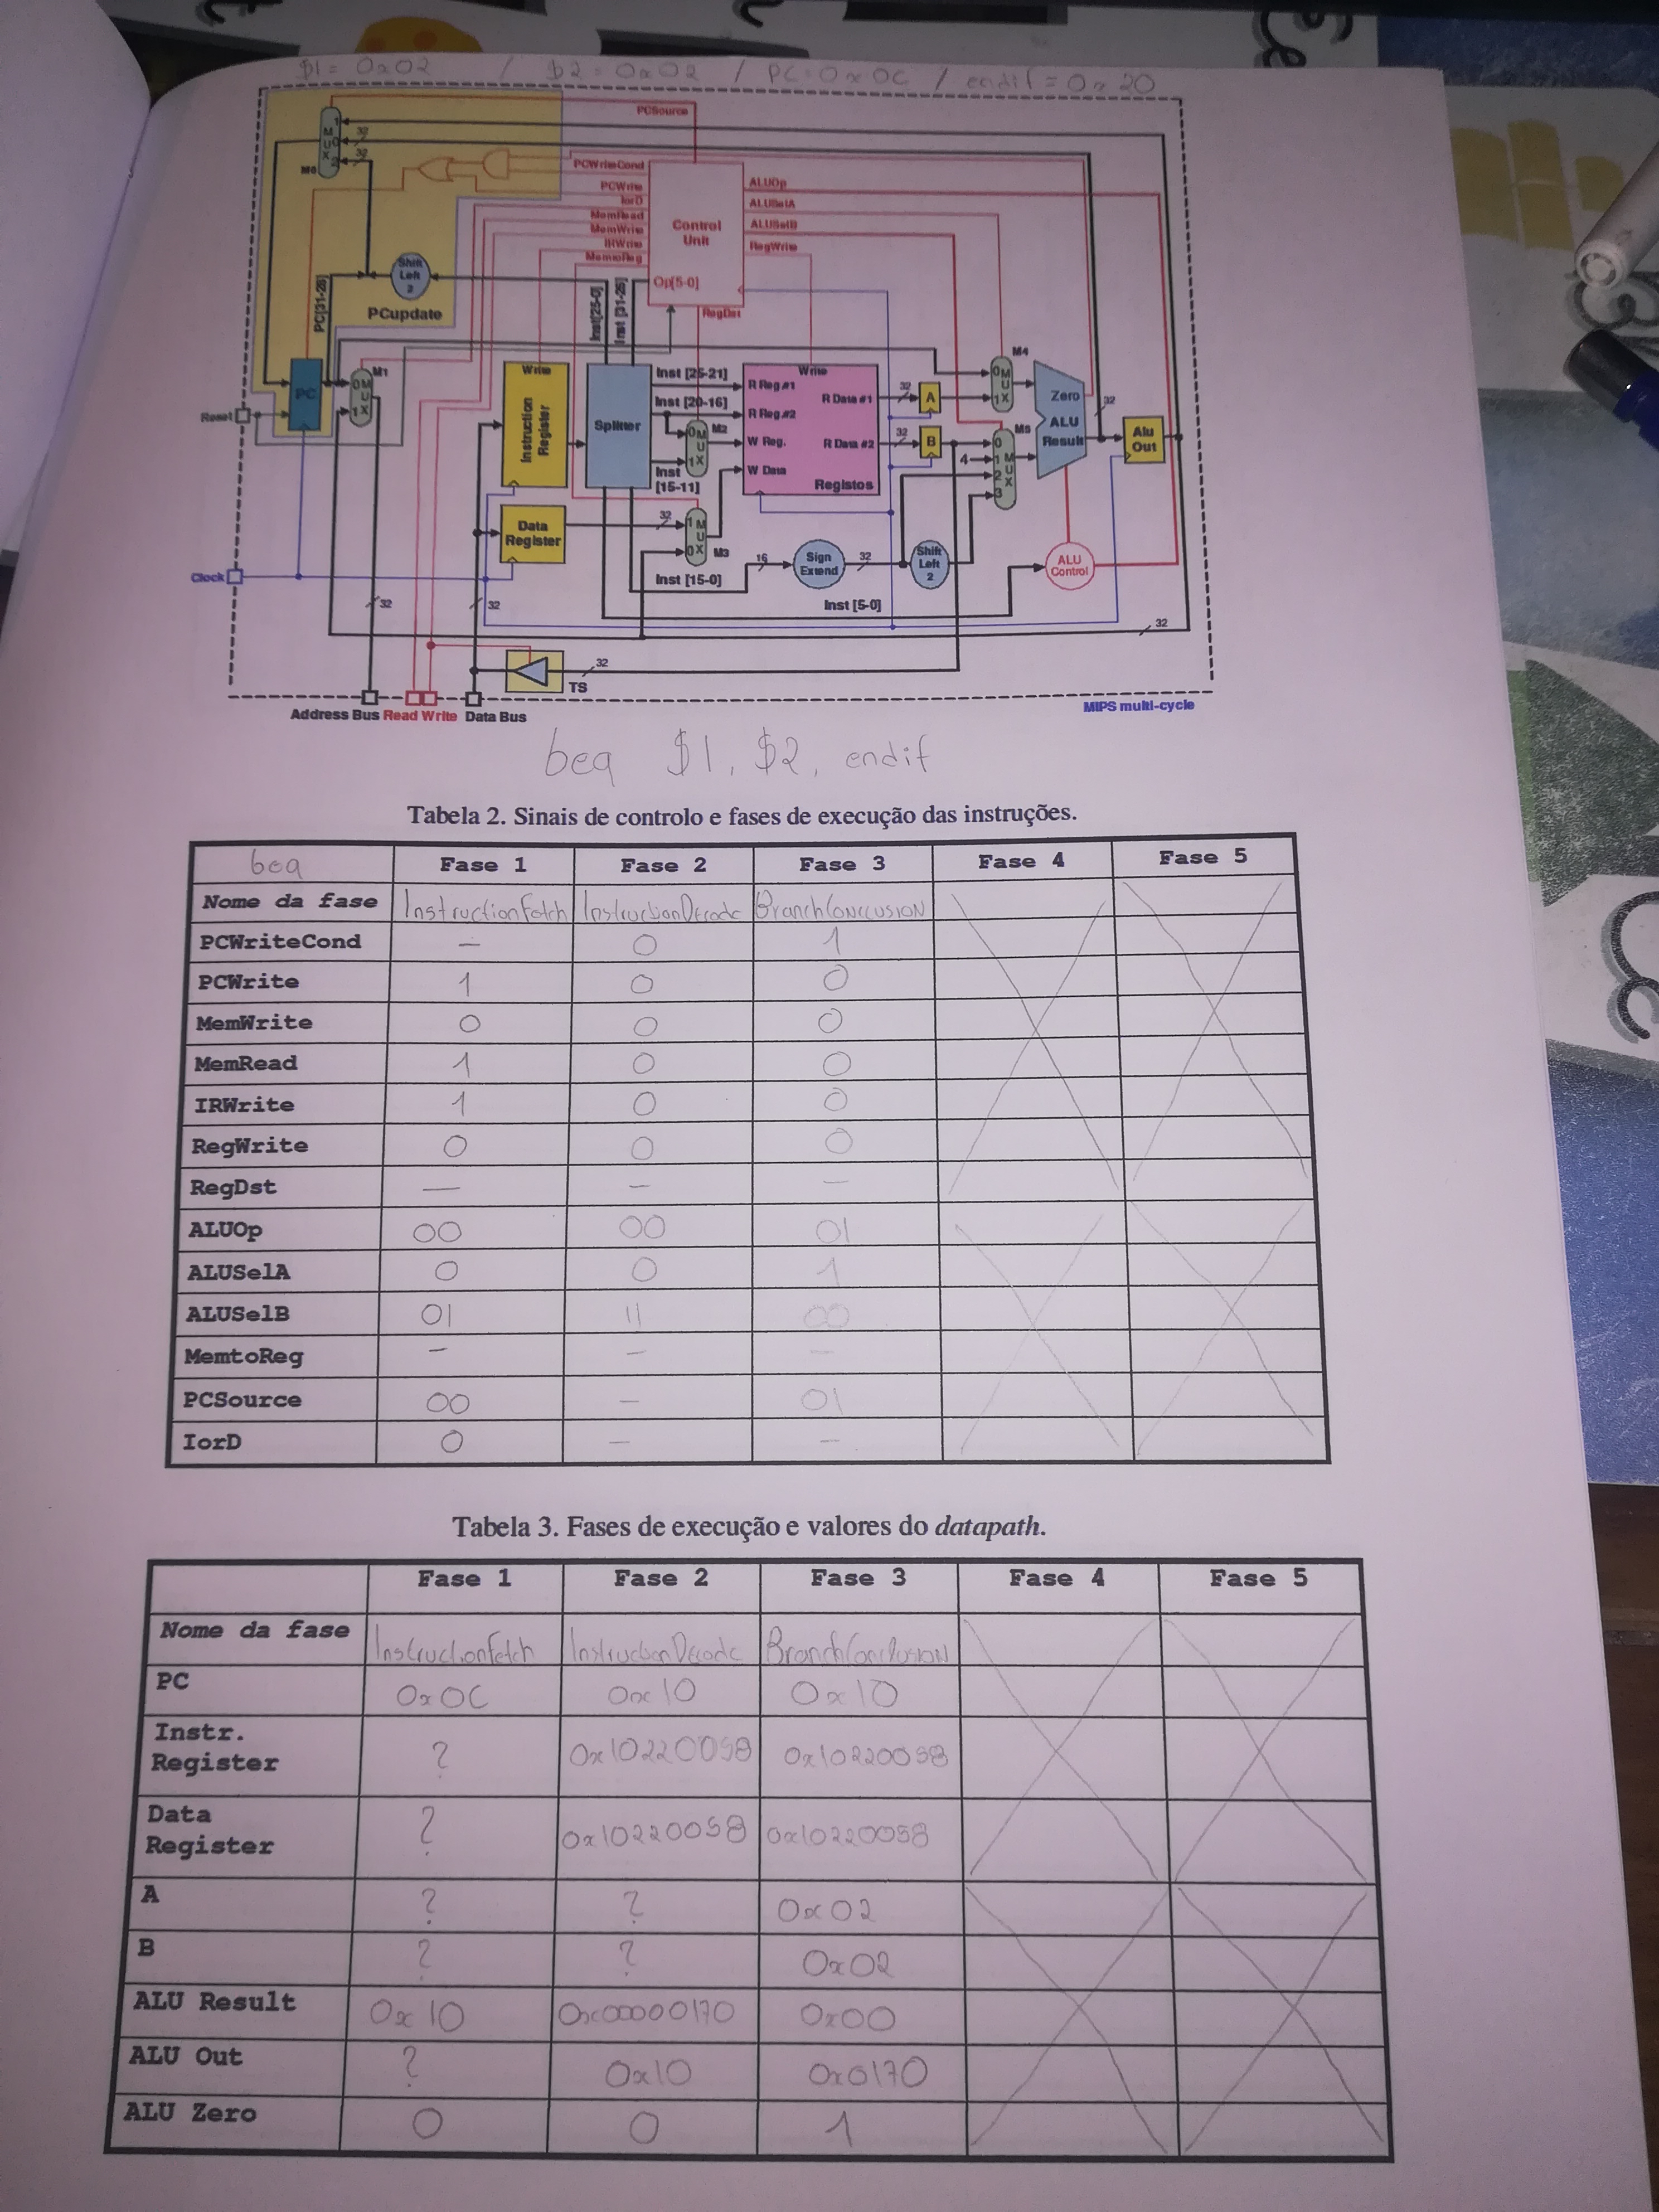 $1 = 0x02 / $2 = 0x02 / PC = 0x0C / endif = 0x20
PCSource
1
M
U 0
X
2
32
32
M6
PCWriteCond
PCWrite
IorD
MemRead
MemWrite
IRWrite
MemtoReg
Control
Unit
Op[5-0]
ALUOp
ALUSelA
ALUSelB
RegWrite
RegDst
Shift
Left
2
PC[31-28]
PCupdate
Inst[25-0]
Inst [31-26]
PC
M1
0 M
U
1 X
Reset
Write
Instruction
Register
Splitter
Inst [25-21]
Inst [20-16]
M2
0 M
U
1 X
Inst
[15-11]
Write
R Reg #1
R Reg #2
W Reg.
W Data
R Data #1
R Data #2
Registos
32
32
A
B
M4
0 M
U
1 X
M5
0
4 1 M
2 U
3 X
Zero
ALU
Result
32
Alu
Out
Data
Register
32
1 M
U
0 X
M3
Inst [15-0]
16
Sign
Extend
32
Shift
Left
2
ALU
Control
Inst [5-0]
Clock
32
32
32
32
TS
Address Bus Read Write Data Bus
MIPS multi-cycle
beq $1, $2, endif
Tabela 2. Sinais de controlo e fases de execução das instruções.
beq Fase 1 Fase 2 Fase 3 Fase 4 Fase 5
Nome da fase InstructionFetch InstructionDecode BranchConclusion
PCWriteCond - 0 1
PCWrite 1 0 0
MemWrite 0 0 0
MemRead 1 0 0
IRWrite 1 0 0
RegWrite 0 0 0
RegDst - - -
ALUOp 00 00 01
ALUSelA 0 0 1
ALUSelB 01 11 00
MemtoReg - - -
PCSource 00 - 01
IorD 0 - -
Tabela 3. Fases de execução e valores do datapath.
Fase 1 Fase 2 Fase 3 Fase 4 Fase 5
Nome da fase InstructionFetch InstructionDecode BranchConclusion
PC 0x0C 0x10 0x10
Instr.
Register ? 0x10220058 0x10220058
Data
Register ? 0x10220058 0x10220058
A ? ? 0x02
B ? ? 0x02
ALU Result 0x10 0x00000170 0x00
ALU Out ? 0x10 0x0170
ALU Zero 0 0 1